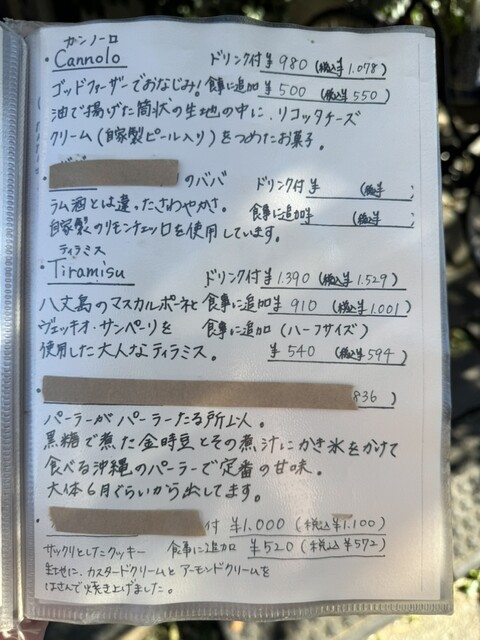 カンノーロ
Cannolo ドリンク付¥980(税込¥1.078)
ゴッドファーザーでおなじみ!食事に追加¥500(税込¥550)
油で揚げた筒状の生地の中に、リコッタチーズ
クリーム(自家製ピール入り)をつめたお菓子。
のババ ドリンク付¥ (税込¥ )
ラム酒とは違ったさわやかさ。 食事に追加¥ (税込¥ )
自家製のリモンチェッロを使用しています。
ティラミス
Tiramisu ドリンク付¥1.390(税込¥1.529)
八丈島のマスカルポーネと 食事に追加¥910(税込¥1.001)
ヴェッキオ・サンペーリを 食事に追加(ハーフサイズ)
使用した大人なティラミス。 ¥540(税込¥594)
836)
パーラーがパーラーたる所以。
黒糖で煮た金時豆とその煮汁にかき氷をかけて
食べる沖縄のパーラーで定番の甘味。
大体6月ぐらいから出してます。
付 ¥1.000(税込¥1.100)
サックリとしたクッキー 食事に追加 ¥520(税込¥572)
生地に、カスタードクリームとアーモンドクリームを
はさんで焼き上げました。